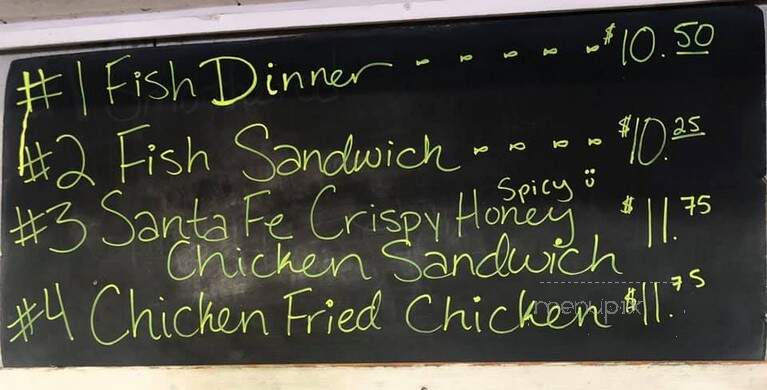 #1 Fish Dinner - - - - - $10.50
#2 Fish Sandwich - - - - $10.25
Spicy
#3 Santa Fe Crispy Honey $11.75
Chicken Sandwich
#4 Chicken Fried Chicken $11.75
menupix